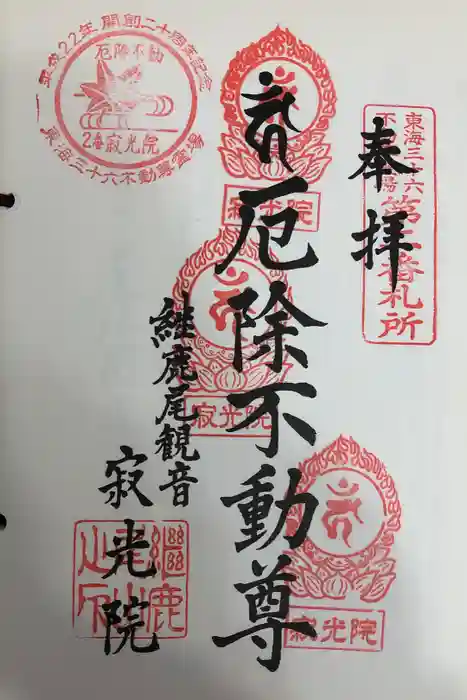 奉拝
東海三十六
不動霊場
第二番札所
厄除不動尊
継鹿尾観音
寂光院
平成22年 開創二十周年記念
厄除不動
2番寂光院
東海三十六不動尊霊場
寂光院
寂光院
寂光院